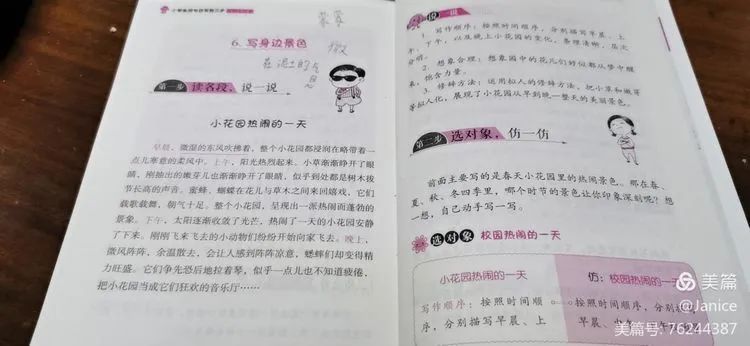 6. 写身边景色
第一步 读名段，说一说
小花园热闹的一天
早晨，微湿的东风吹拂着，整个小花园都浸润在略带着一
点儿寒意的柔风中。上午，阳光热烈起来。小草渐渐睁开了眼
睛，刚抽出的嫩芽儿也渐渐睁开了眼睛，似乎到处都是树木拔
节长高的声音。蜜蜂、蝴蝶在花儿与草木之间来回嬉戏，它们
载歌载舞，朝气十足。整个小花园，呈现出一派热闹而蓬勃的
景象。下午，太阳逐渐收敛了光芒，热闹了一天的小花园安静
了下来。刚刚飞来飞去的小动物们纷纷开始向家飞去。晚上，
微风阵阵，余温散去，会让人感到阵阵凉意，蟋蟀们却变得精
力旺盛。它们争先恐后地拉着琴，似乎一点儿也不知道疲倦，
把小花园当成它们狂欢的音乐厅……
说一说
1. 写作顺序：按照时间顺序，分别描写早晨、上
午、下午，以及晚上小花园的变化，条理清晰，层次
分明。
2. 想象合理：想象园中的花儿们好似都从梦中醒
来，饱含力量。
3. 修辞方法：运用拟人的修辞方法，把小草和嫩芽
等拟人化，展现了小花园从早到晚一整天的美丽景色。
第二步 选对象，仿一仿
前面主要写的是春天小花园里的热闹景色。那在春、
夏、秋、冬四季里，哪个时节的景色让你印象深刻呢？想
一想，自己动手写一写。
选对象 校园热闹的一天
小花园热闹的一天
仿：校园热闹的一天
写作顺序：按照时间顺
序，分别描写早晨、上
按照时间顺序，分别描写
早晨、
美篇
@Janice
美篇号: 76244387